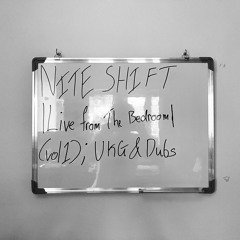 NITE SHIFT
|Live from The Bedroom|
(vol1); UKG & Dubs